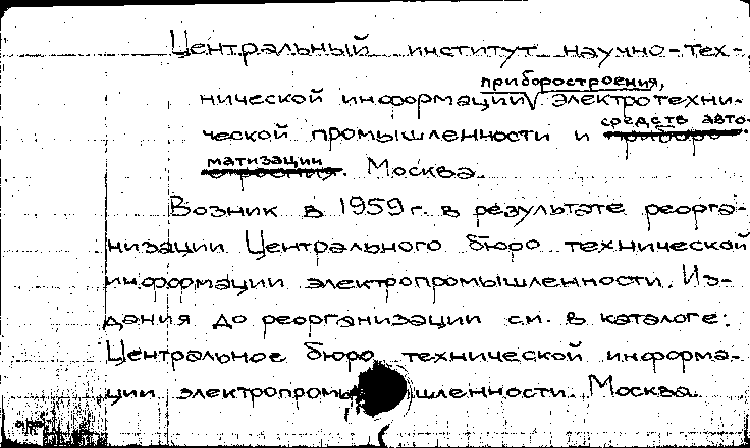 Центральный институт научно-тех-
приборостроения,
нической информации электротехни-
средств авто-
ческой промышленности и
матизации
. Москва.
Возник в 1959 г. в результате реорга-
низации Центрального бюро технической
информации электропромышленности. Из-
дания до реорганизации см. в каталоге:
Центральное бюро технической информа-
ции электропромышленности. Москва.